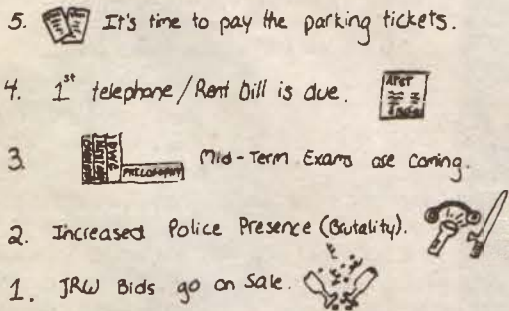 5. It's time to pay the parking tickets.
4. 1st telephone/Rent bill is due.
3. PHILOSOPHY Mid-Term Exams are coming.
2. Increased Police Presence (Brutality).
1. JRW Bids go on Sale.